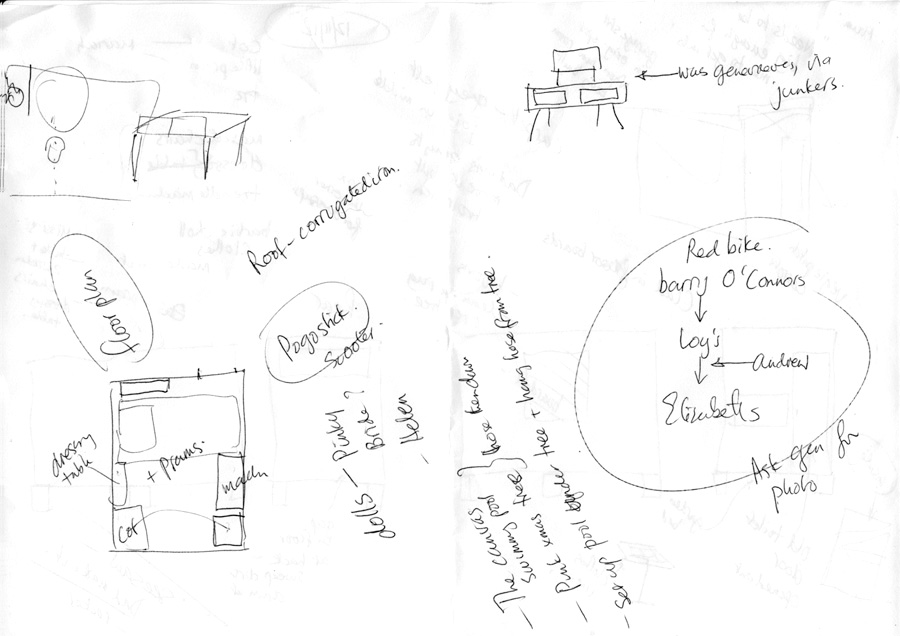 was genevieves, via
junkers.
Roof - corrugated iron.
floor plan
Pogostick.
Scooter.
dressing
table
+ Prams.
Cot
dolls - Pinky
Bride?
- Helen
- The canvas
swimming pool
- Pink xmas tree
- Set up pool under tree + hang hose from tree.
Red bike.
barry O'Connors
Loy's
andrew
Elizabeths
Ask gen for
photo